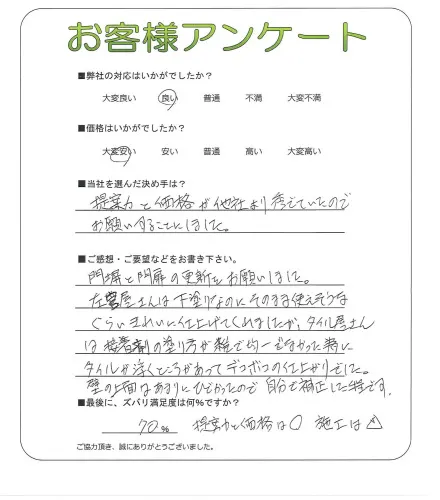 お客様アンケート
■弊社の対応はいかがでしたか？
大変良い　良い　普通　不満　大変不満
■価格はいかがでしたか？
大変安い　安い　普通　高い　大変高い
■当社を選んだ決め手は？
提案力と価格が他社より秀でていたので
お願いすることにしました。
■ご感想・ご要望などをお書き下さい。
門塀と門扉の更新をお願いしました。
左官屋さんは下塗りなのにそのまま使えそうな
くらいきれいに仕上げてくれましたが、タイル屋さん
は接着剤の塗り方が雑で均一でなかった為に
タイルが浮くところがあってデコボコの仕上がりでした。
壁の上面はあまりにひどかったので自分で補正した程です。
■最後に、ズバリ満足度は何％ですか？
70％　提案力と価格は○　施工は△
ご協力頂き、誠にありがとうございました。